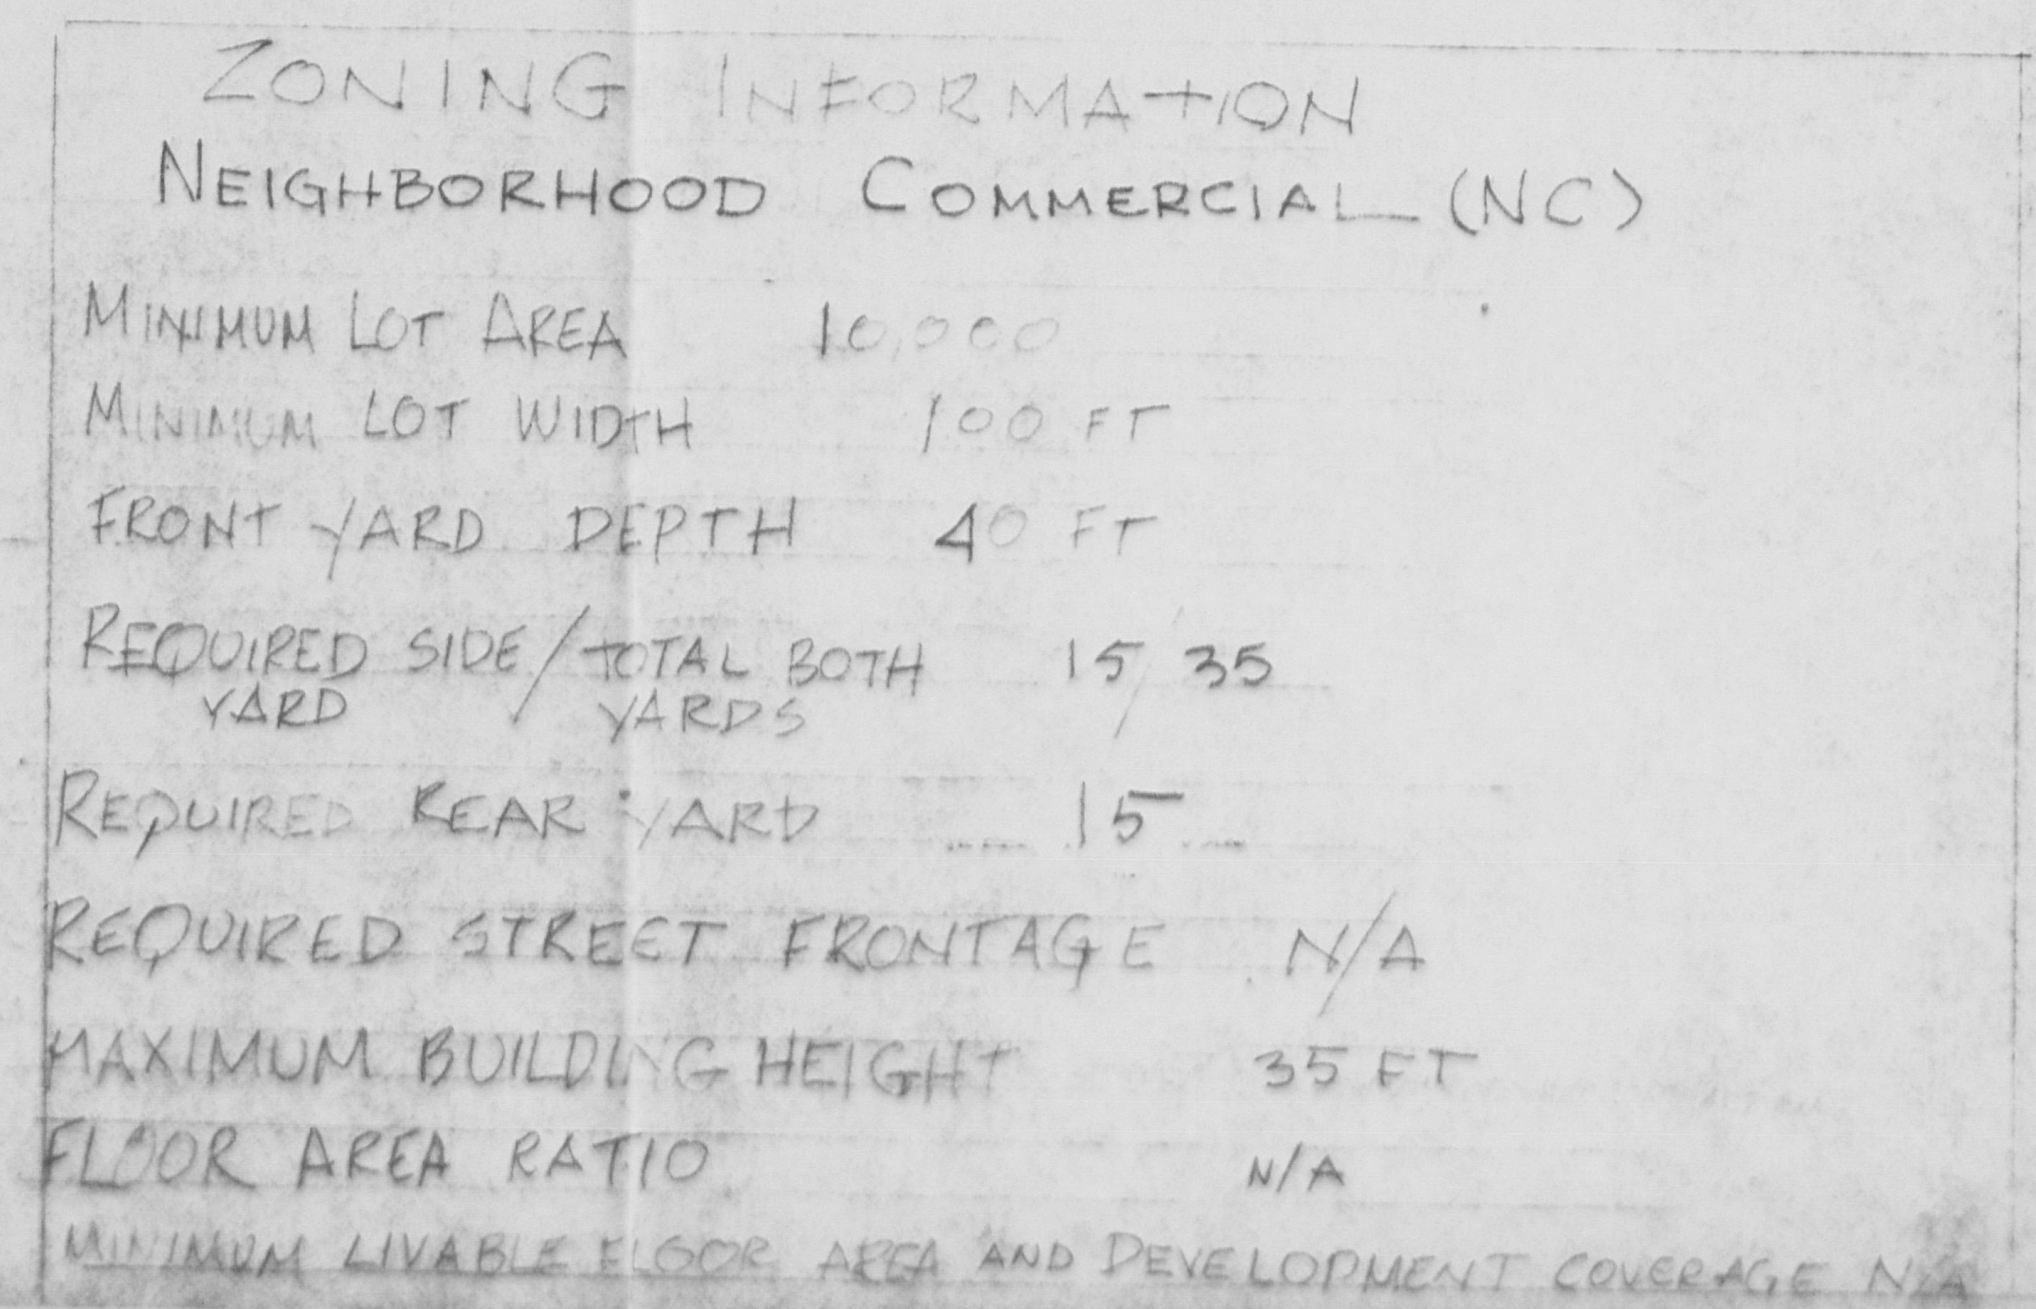 ZONING INFORMATION
NEIGHBORHOOD COMMERCIAL (NC)
MINIMUM LOT AREA 10,000
MINIMUM LOT WIDTH 100 FT
FRONT YARD DEPTH 40 FT
REQUIRED SIDE / TOTAL BOTH 15 / 35
YARD YARDS
REQUIRED REAR YARD 15
REQUIRED STREET FRONTAGE N/A
MAXIMUM BUILDING HEIGHT 35 FT
FLOOR AREA RATIO N/A
MINIMUM LIVABLE FLOOR AREA AND DEVELOPMENT COVERAGE N/A